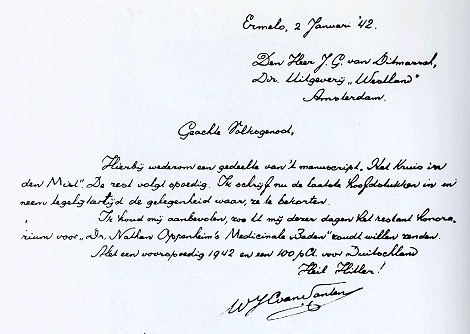 Ermelo, 2 Januari '42.
Den Heer J. G. van Ditmarsch,
Dir. Uitgeverij "Westland"
Amsterdam.
Geachte Volksgenoot,
Hierbij wederom een gedeelte van 't manuscript "Het Kruis in
den Mist". De rest volgt spoedig. Ik schrijf nu de laatste hoofdstukken in en
neem tegelijkertijd de gelegenheid waar, ze te bekorten.
Ik houd mij aanbevolen, zoo U mij dezer dagen het restant honora-
rium voor "Dr. Nathan Oppenheim's Medicinale Baden" zoudt willen zenden.
Met een voorspoedig 1942 en een 100 pCt. voor Duitschland
Heil Hitler!